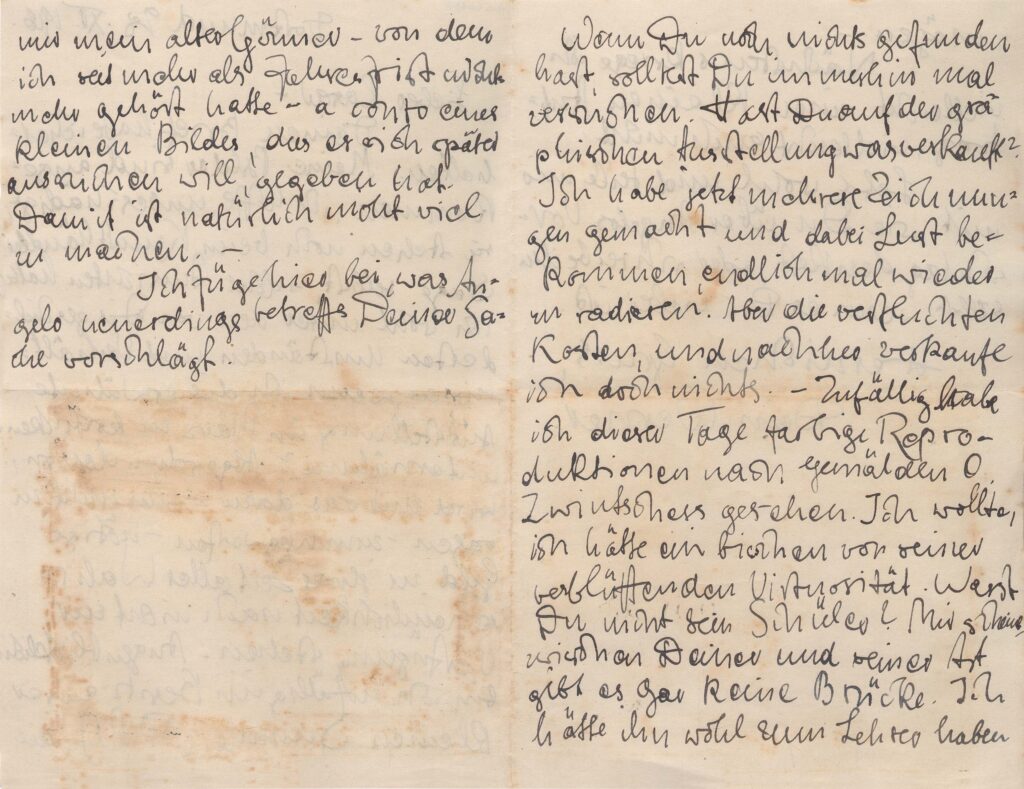 mir mein alter Gönner – von dem
ich seit mehr als Jahresfrist nichts
mehr gehört hatte – a conto eines
kleinen Bildes, das er sich später
aussuchen will, gegeben hat.
Damit ist natürlich nicht viel
zu machen. –
Ich füge hier bei, was An-
gelo neuerdings betreffs Deiner Sa-
che vorschlägt.
Wenn Du noch nichts gefunden
hast, solltest Du immerhin mal
versuchen. Hast Du auf der gra-
phischen Ausstellung was verkauft?
Ich habe jetzt mehrere Zeichnun-
gen gemacht und dabei Lust be-
kommen, endlich mal wieder
zu radieren. Aber die verfluchten
Kosten, und nachher verkaufe
ich doch nichts. – Zufällig habe
ich dieser Tage farbige Repro-
duktionen nach Gemälden O.
Zwintschers gesehen. Ich wollte,
ich hätte ein bischen von seiner
verblüffenden Virtuosität. Warst
Du nicht sein Schüler? Mir scheint,
zwischen Deiner und seiner Art
gibt es gar keine Brücke. Ich
hätte ihn wohl zum Lehrer haben